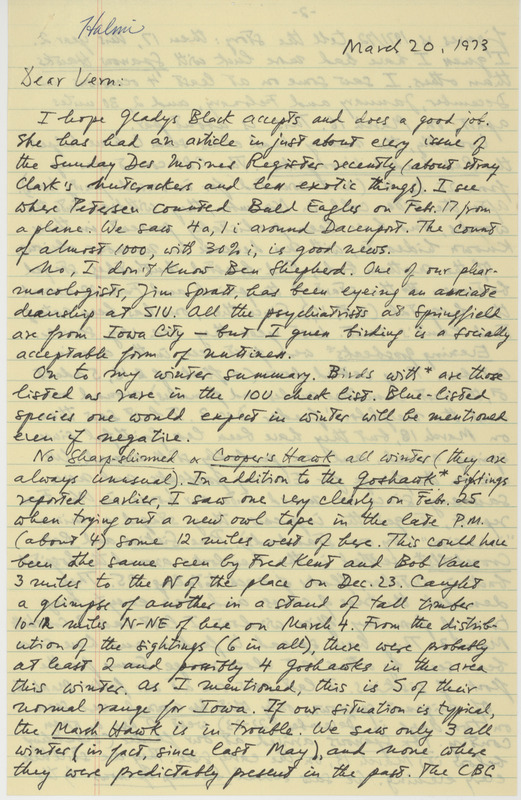 Halmi
March 20, 1973
Dear Vern:
I hope Gladys Black accepts and does a good job.
She has had an article in just about every issue of
the Sunday Des Moines Register recently (about stray
Clark's nutcrackers and less exotic things). I see
where Petersen counted Bald Eagles on Febr. 17 from
a plane. We saw 4a, 1i around Davenport. The count
of almost 1000, with 30% i, is good news.
No, I don't know Ben Shepherd. One of our phar-
macologists, Jim Spratt, has been eyeing an associate
deanship at SIU. All the psychiatrists at Springfield
are from Iowa City – but I guess birding is a socially
acceptable form of nuttiness.
On to my winter summary. Birds with * are those
listed as rare in the IOU check list. Blue-listed
species one would expect in winter will be mentioned
even if negative.
No Sharp-shinned or Cooper's Hawk all winter (they are
always unusual). In addition to the Goshawk* sightings
reported earlier, I saw one very clearly on Feb. 25
when trying out a new owl tape in the late P.M.
(about 4) some 12 miles west of here. This could have
been the same seen by Fred Kent and Bob Vane
3 miles to the N of the place on Dec. 23. Caught
a glimpse of another in a stand of tall timber
10-12 miles N-NE of here on March 4. From the distrib-
ution of the sightings (6 in all), there were probably
at least 2 and possibly 4 goshawks in the area
this winter. As I mentioned, this is S of their
normal range for Iowa. If our situation is typical,
the Marsh Hawk is in trouble. We saw only 3 all
winter (in fact, since last May), and none where
they were predictably present in the past. The CBC